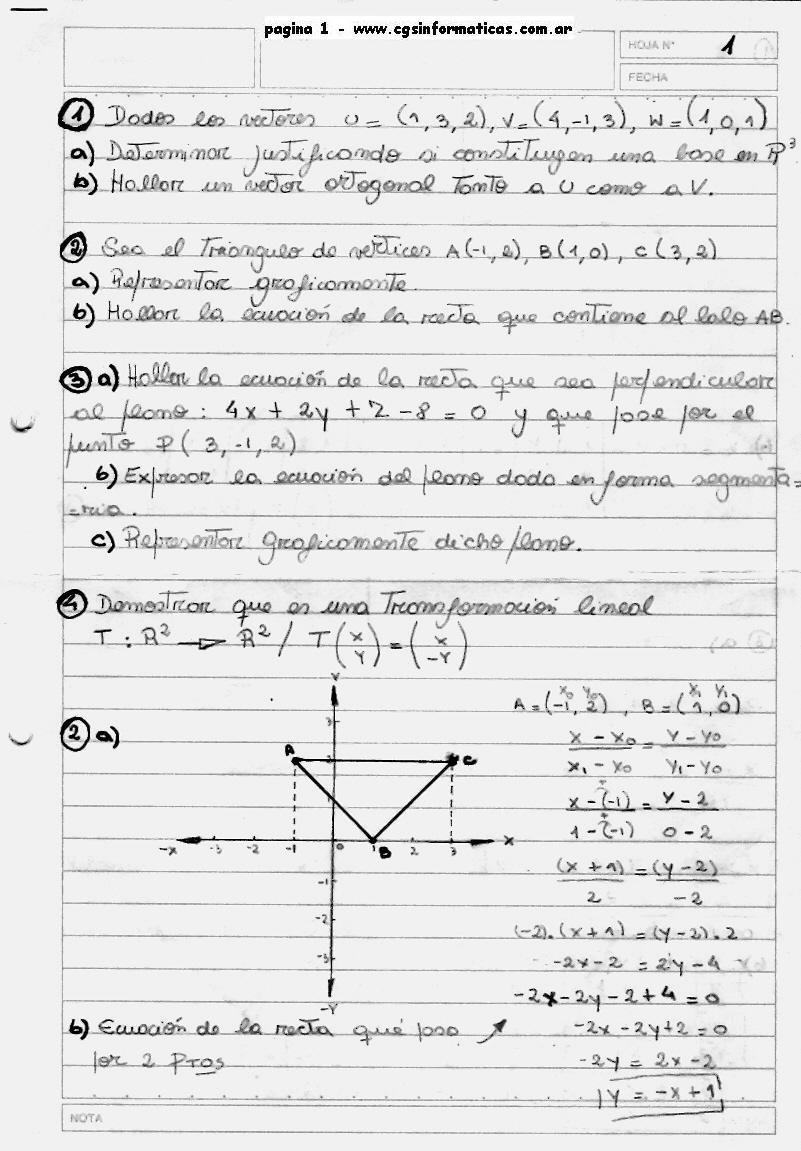 pagina 1 - www.cgsinformaticas.com.ar
HOJA N° 1
FECHA
① Dados los vectores U = (1, 3, 2), V = (4, -1, 3), W = (1, 0, 1)
a) Determinar justificando si constituyen una base en R³
b) Hallar un vector ortogonal tanto a U como a V.
② Sea el triangulo de vertices A(-1, 2), B(1, 0), C(3, 2)
a) Representar graficamente.
b) Hallar la ecuación de la recta que contiene al lado AB.
③ a) Hallar la ecuación de la recta que sea perpendicular
al plano: 4x + 2y + z - 8 = 0 y que pase por el
punto P(3, -1, 2)
b) Expresar la ecuación del plano dado en forma segmenta=
=ria.
c) Representar graficamente dicho plano.
④ Demostrar que es una Transformación lineal
T : R² → R² / T(x y) = (x -y)
② a)
Y
3
2
1
A
C
B
-X -3 -2 -1 0 1 2 3 X
-1
-2
-3
-Y
x₀ y₀ x₁ y₁
A = (-1, 2), B = (1, 0)
x - x₀ = y - y₀
x₁ - x₀ y₁ - y₀
x - (-1) = y - 2
1 - (-1) 0 - 2
(x + 1) = (y - 2)
2 -2
(-2).(x + 1) = (y - 2).2
-2x - 2 = 2y - 4
-2x - 2y - 2 + 4 = 0
b) Ecuación de la recta que pasa ↗ -2x - 2y + 2 = 0
por 2 Ptos -2y = 2x - 2
y = -x + 1
NOTA